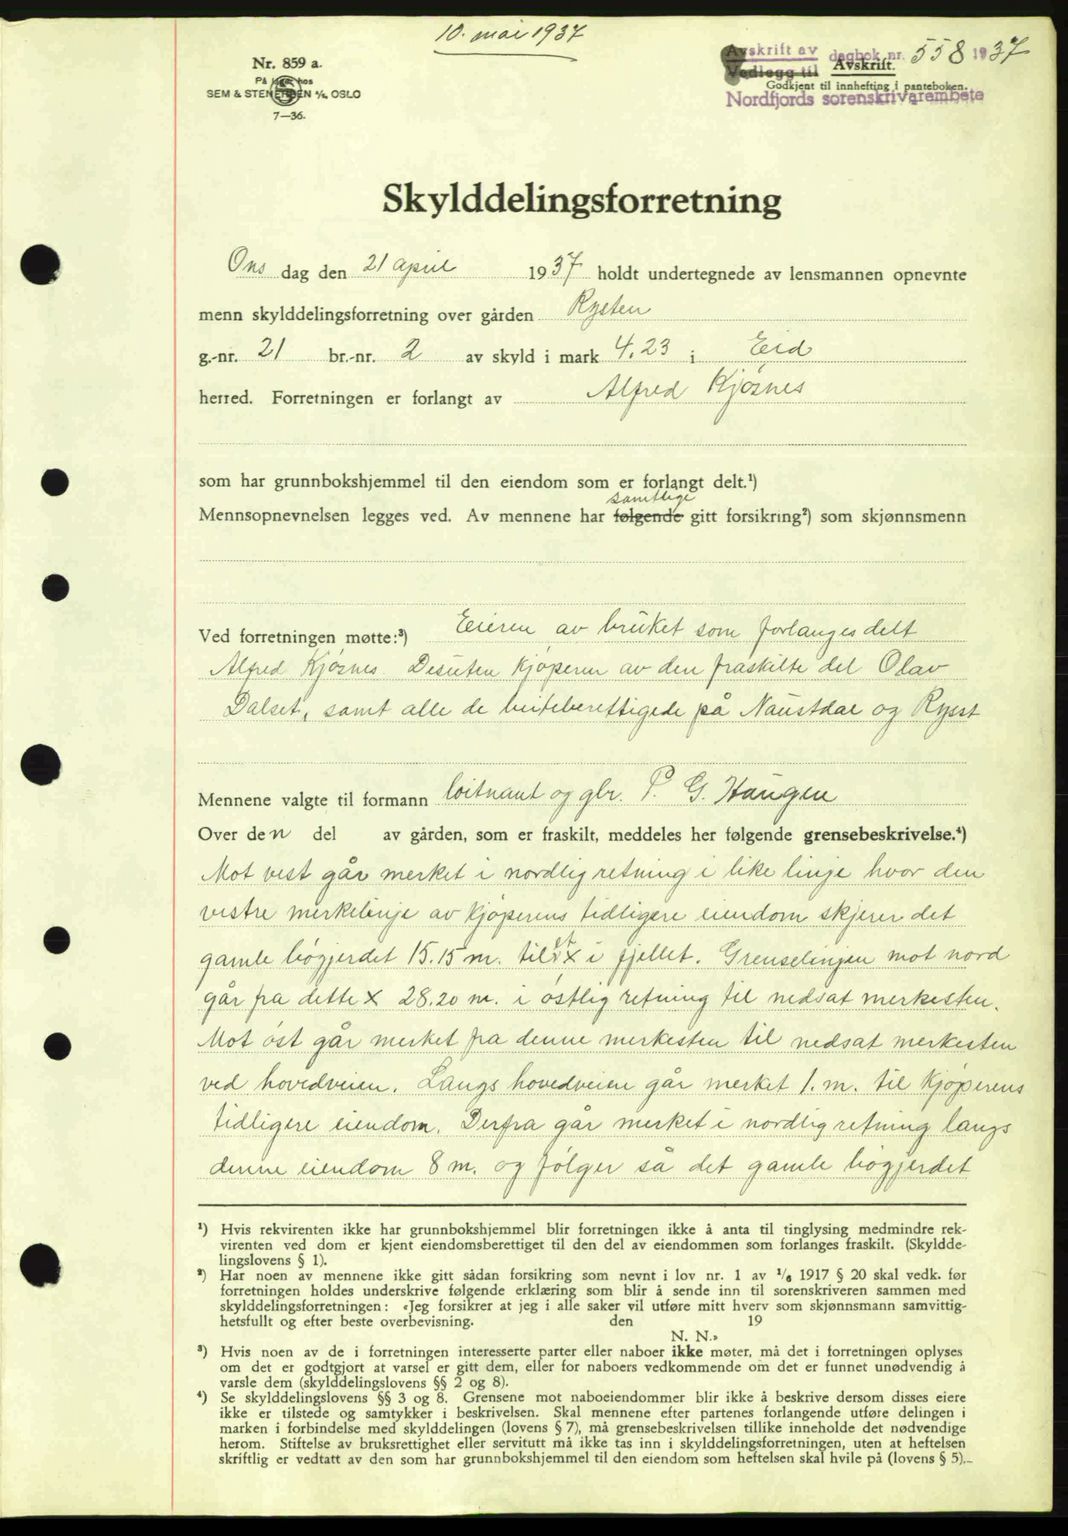 10. mai 1937
Nr. 859 a.
På lager hos
SEM & STENERSEN A/S, OSLO
7—36.
Avskrift av dagbok nr. 558 1937
Vedlegg til Avskrift.
Godkjent til innhefting i panteboken.
Nordfjords sorenskrivarembete
Skylddelingsforretning
Ons dag den 21 april 1937 holdt undertegnede av lensmannen opnevnte
menn skylddelingsforretning over gården Rysten
g.-nr. 21 br.-nr. 2 av skyld i mark 4.23 i Eid
herred. Forretningen er forlangt av Alfred Kjøsnes
som har grunnbokshjemmel til den eiendom som er forlangt delt.¹)
samtlige
Mennsopnevnelsen legges ved. Av mennene har følgende gitt forsikring²) som skjønnsmenn
Ved forretningen møtte:³) Eieren av bruket som forlanges delt
Alfred Kjøsnes. Desuten kjøperen av den fraskilte del Olav
Dalset, samt alle de beiteberettigede på Naustdal og Rysst
Mennene valgte til formann loitnant og gbr. P. G. Haugen
Over den del av gården, som er fraskilt, meddeles her følgende grensebeskrivelse.⁴)
Mot vest går merket i nordlig retning i like linje hvor den
vestre merkelinje av kjøperens tidligere eiendom skjerer det
gamle bøgjerdet 15.15 m. til et x i fjellet. Grenselinjen mot nord
går fra dette x 28.20 m. i østlig retning til nedsat merkesten.
Mot øst går merket fra denne merkesten til nedsat merkesten
ved hovedveien. Langs hovedveien går merket 1. m. til kjøperens
tidligere eiendom. Derfra går merket i nordlig retning langs
denne eiendom 8 m. og følger så det gamle bøgjerdet
¹) Hvis rekvirenten ikke har grunnbokshjemmel blir forretningen ikke å anta til tinglysing medmindre rek-
virenten ved dom er kjent eiendomsberettiget til den del av eiendommen som forlanges fraskilt. (Skyldde-
lingslovens § 1).
²) Har noen av mennene ikke gitt sådan forsikring som nevnt i lov nr. 1 av 1/6 1917 § 20 skal vedk. før
forretningen holdes underskrive følgende erklæring som blir å sende inn til sorenskriveren sammen med
skylddelingsforretningen: «Jeg forsikrer at jeg i alle saker vil utføre mitt hverv som skjønnsmann samvittig-
hetsfullt og efter beste overbevisning. den 19
N. N.»
³) Hvis noen av de i forretningen interesserte parter eller naboer ikke møter, må det i forretningen oplyses
om det er godtgjort at varsel er gitt dem, eller for naboers vedkommende om det er funnet unødvendig å
varsle dem (skylddelingslovens §§ 2 og 8).
⁴) Se skylddelingslovens §§ 3 og 8. Grensene mot naboeiendommer blir ikke å beskrive dersom disses eiere
ikke er tilstede og samtykker i beskrivelsen. Skal mennene efter partenes forlangende utføre delingen i
marken i forbindelse med skylddelingen (lovens § 7), må grensebeskrivelsen tillike inneholde det nødvendige
herom. Stiftelse av bruksrettighet eller servitutt må ikke tas inn i skylddelingsforretningen, uten at heftelsen
skriftlig er vedtatt av den som har grunnbokshjemmel til den eiendom som heftelsen skal hvile på (lovens § 5).